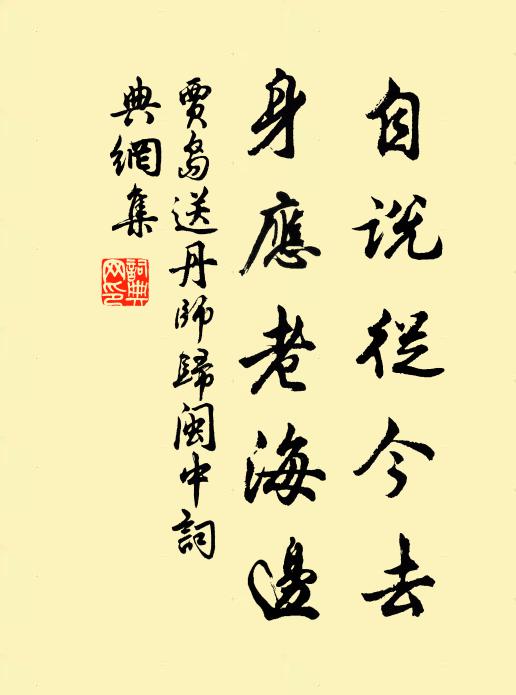 自説從今去
身應老海邊
賈島送丹師歸閩中詞
典網集
詞典
网印